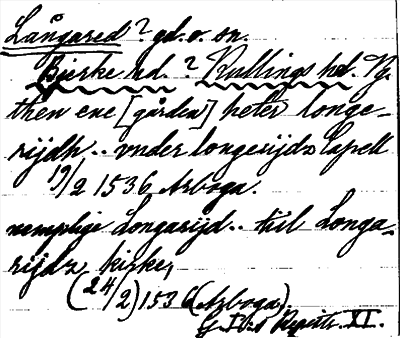 Långared ? gd. o. sn.
Bjerke hd. ? Kullings hd.
then ene [gården] heter longe-
rijdh.. vnder longerijdz Capell
19/2 1536 Arboga.
nempligē Longarijd.. till Longa-
rijdz kirke,
(24/2) 1536 (Arboga).
G. I:s Registr. XI.